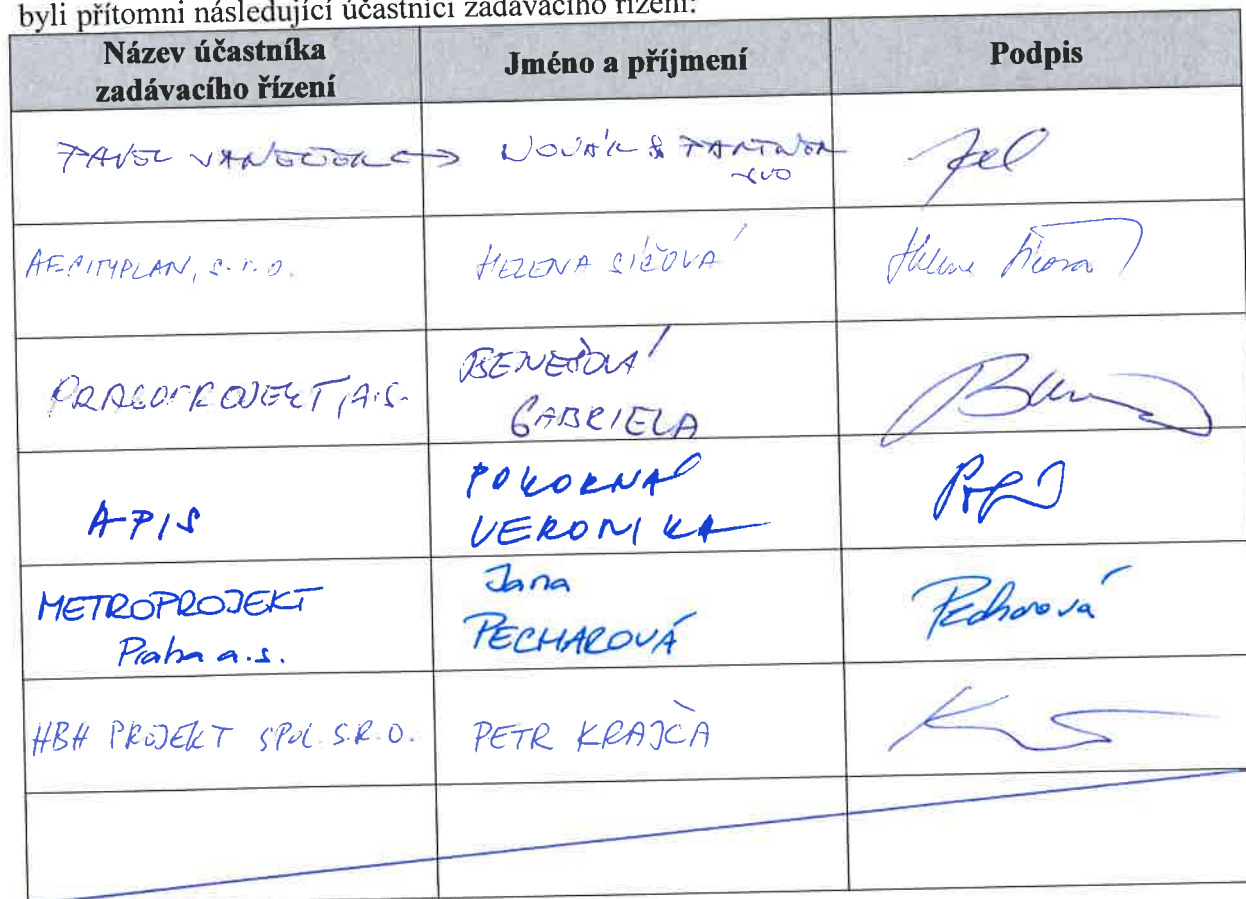 byli přítomni následující účastníci zadávacího řízení:
Název účastníka
zadávacího řízení
Jméno a příjmení
Podpis
PAVEL VANĚČEK ↔ NOVÁK & PARTNER
SRO
AF-CITYPLAN, s.r.o.
HELENA
PRAGOPROJEKT, A.S.
BENEŠOVÁ
GABRIELA
APIS
POKORNÁ
VERONIKA
METROPROJEKT
Praha a.s.
Jana
PECHAROVÁ
Pecharová
HBH PROJEKT SPOL. S.R.O.
PETR KRAJČA